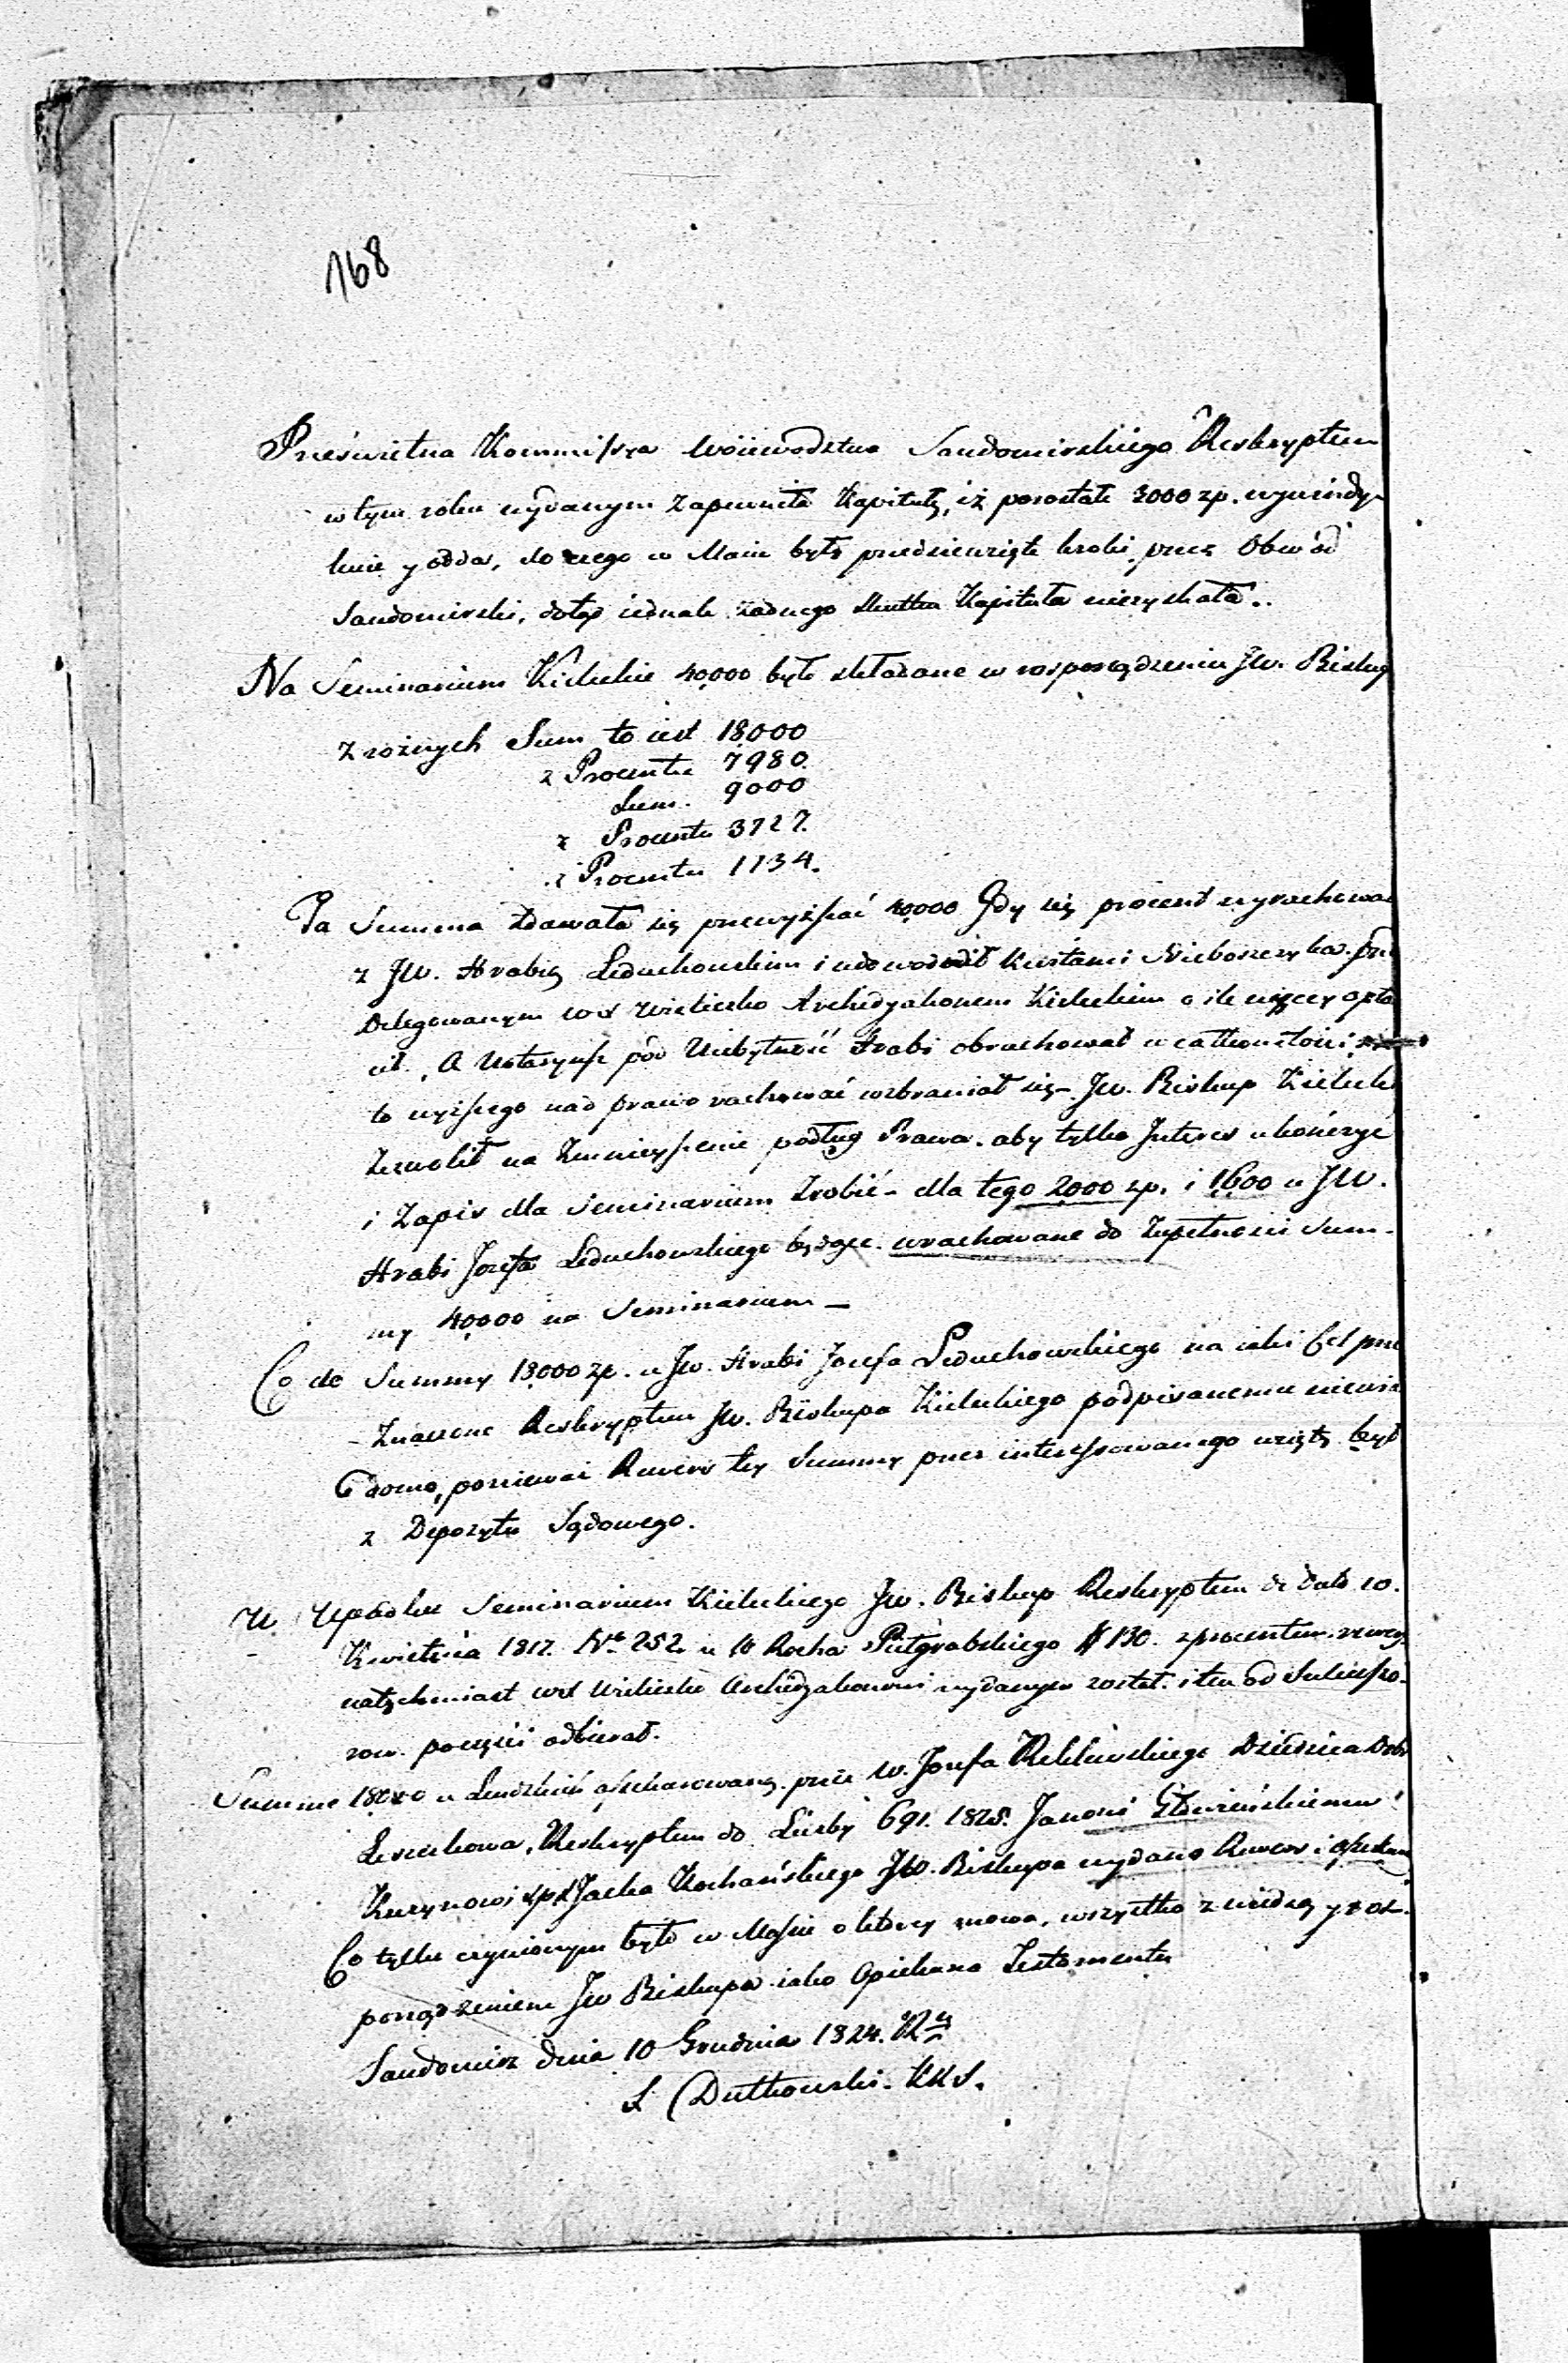 168
Prześwietna Kommissya Woiewodztwa Sandomirskiego Reskryptem
w tym roku wydanym zapewniła Kapitułę, iż pozostałe 3000 zp. wywindy-
kuie y odda, do czego w Maiu były przedsięwzięte kroki przez Obwód
Sandomirski, dotąd iednak żadnego skutku Kapituła niezyskała.
Na Seminarium Kieleckie 40,000 było składane w rosporządzeniu JW. Biskup
z rożnych Sum to iest 18000
z Procentu 7980.
Sum. 9000
z Procentu 3727.
z Procentu 1134.
Ta Summa zdawała się przewyższać 40,000 Gdy się procent wyrachował
z JW. Hrabią Leduchowskim i udowodnił kwitami Nieboszczyka prz
Delegowanym Archidyakonem Kieleckim o ile więcey opła
cił. A pod Niebytność Hrabi obrachował w całkowitości
to wyższego nad prawo rachować wzbraniał się - JW. Biskup Kielecki
Zezwolił na Zmnieyszenie podług Prawa. aby tylko Interes ukończyć
i Zapis dla Seminarium Zrobić - dla tego 2000 zp. i 1600 u JW.
Hrabi Jozefa Leduchowskiego będące wrachowane do Zupełności Sum-
my 40,000 na Seminarium -
Co do Summy 18000 zp. u JW. Hrabi Jozefa Leduchowskiego na iaki Cel prze
- znaczone Reskryptem JW. Biskupa Kieleckiego podpisanemu niewia
domo, ponieważ Rewers tey Summy przez interessowanego wzięty był
z Depozytu Sądowego.
W Upadku Seminarium Kieleckiego JW. Biskup Reskryptem de dato 10.
Kwietnia 1817. No 252 u W Rocha # 130. z procentem rewers
natychmiast Archidyakonowi wydanym został. i ten od Sukcesso-
row. poczęści odbierał.
Summe 18000 u prze W. Jozefa Dziedzica Dobr
Reskryptem do Liczby 691. 1825.
Kuzynowi Jacka Kochańskiego JW. Biskupa wydano Rewers i
Co tylko czynionym było w Massie o ktorey mowa, wszystko z wiedzą y roz-
porządzeniem JW Biskupa iako Opiekuna Testamentu
Sandomirz dnia 10 Grudnia 1824. R
Dutkowski. KKS.